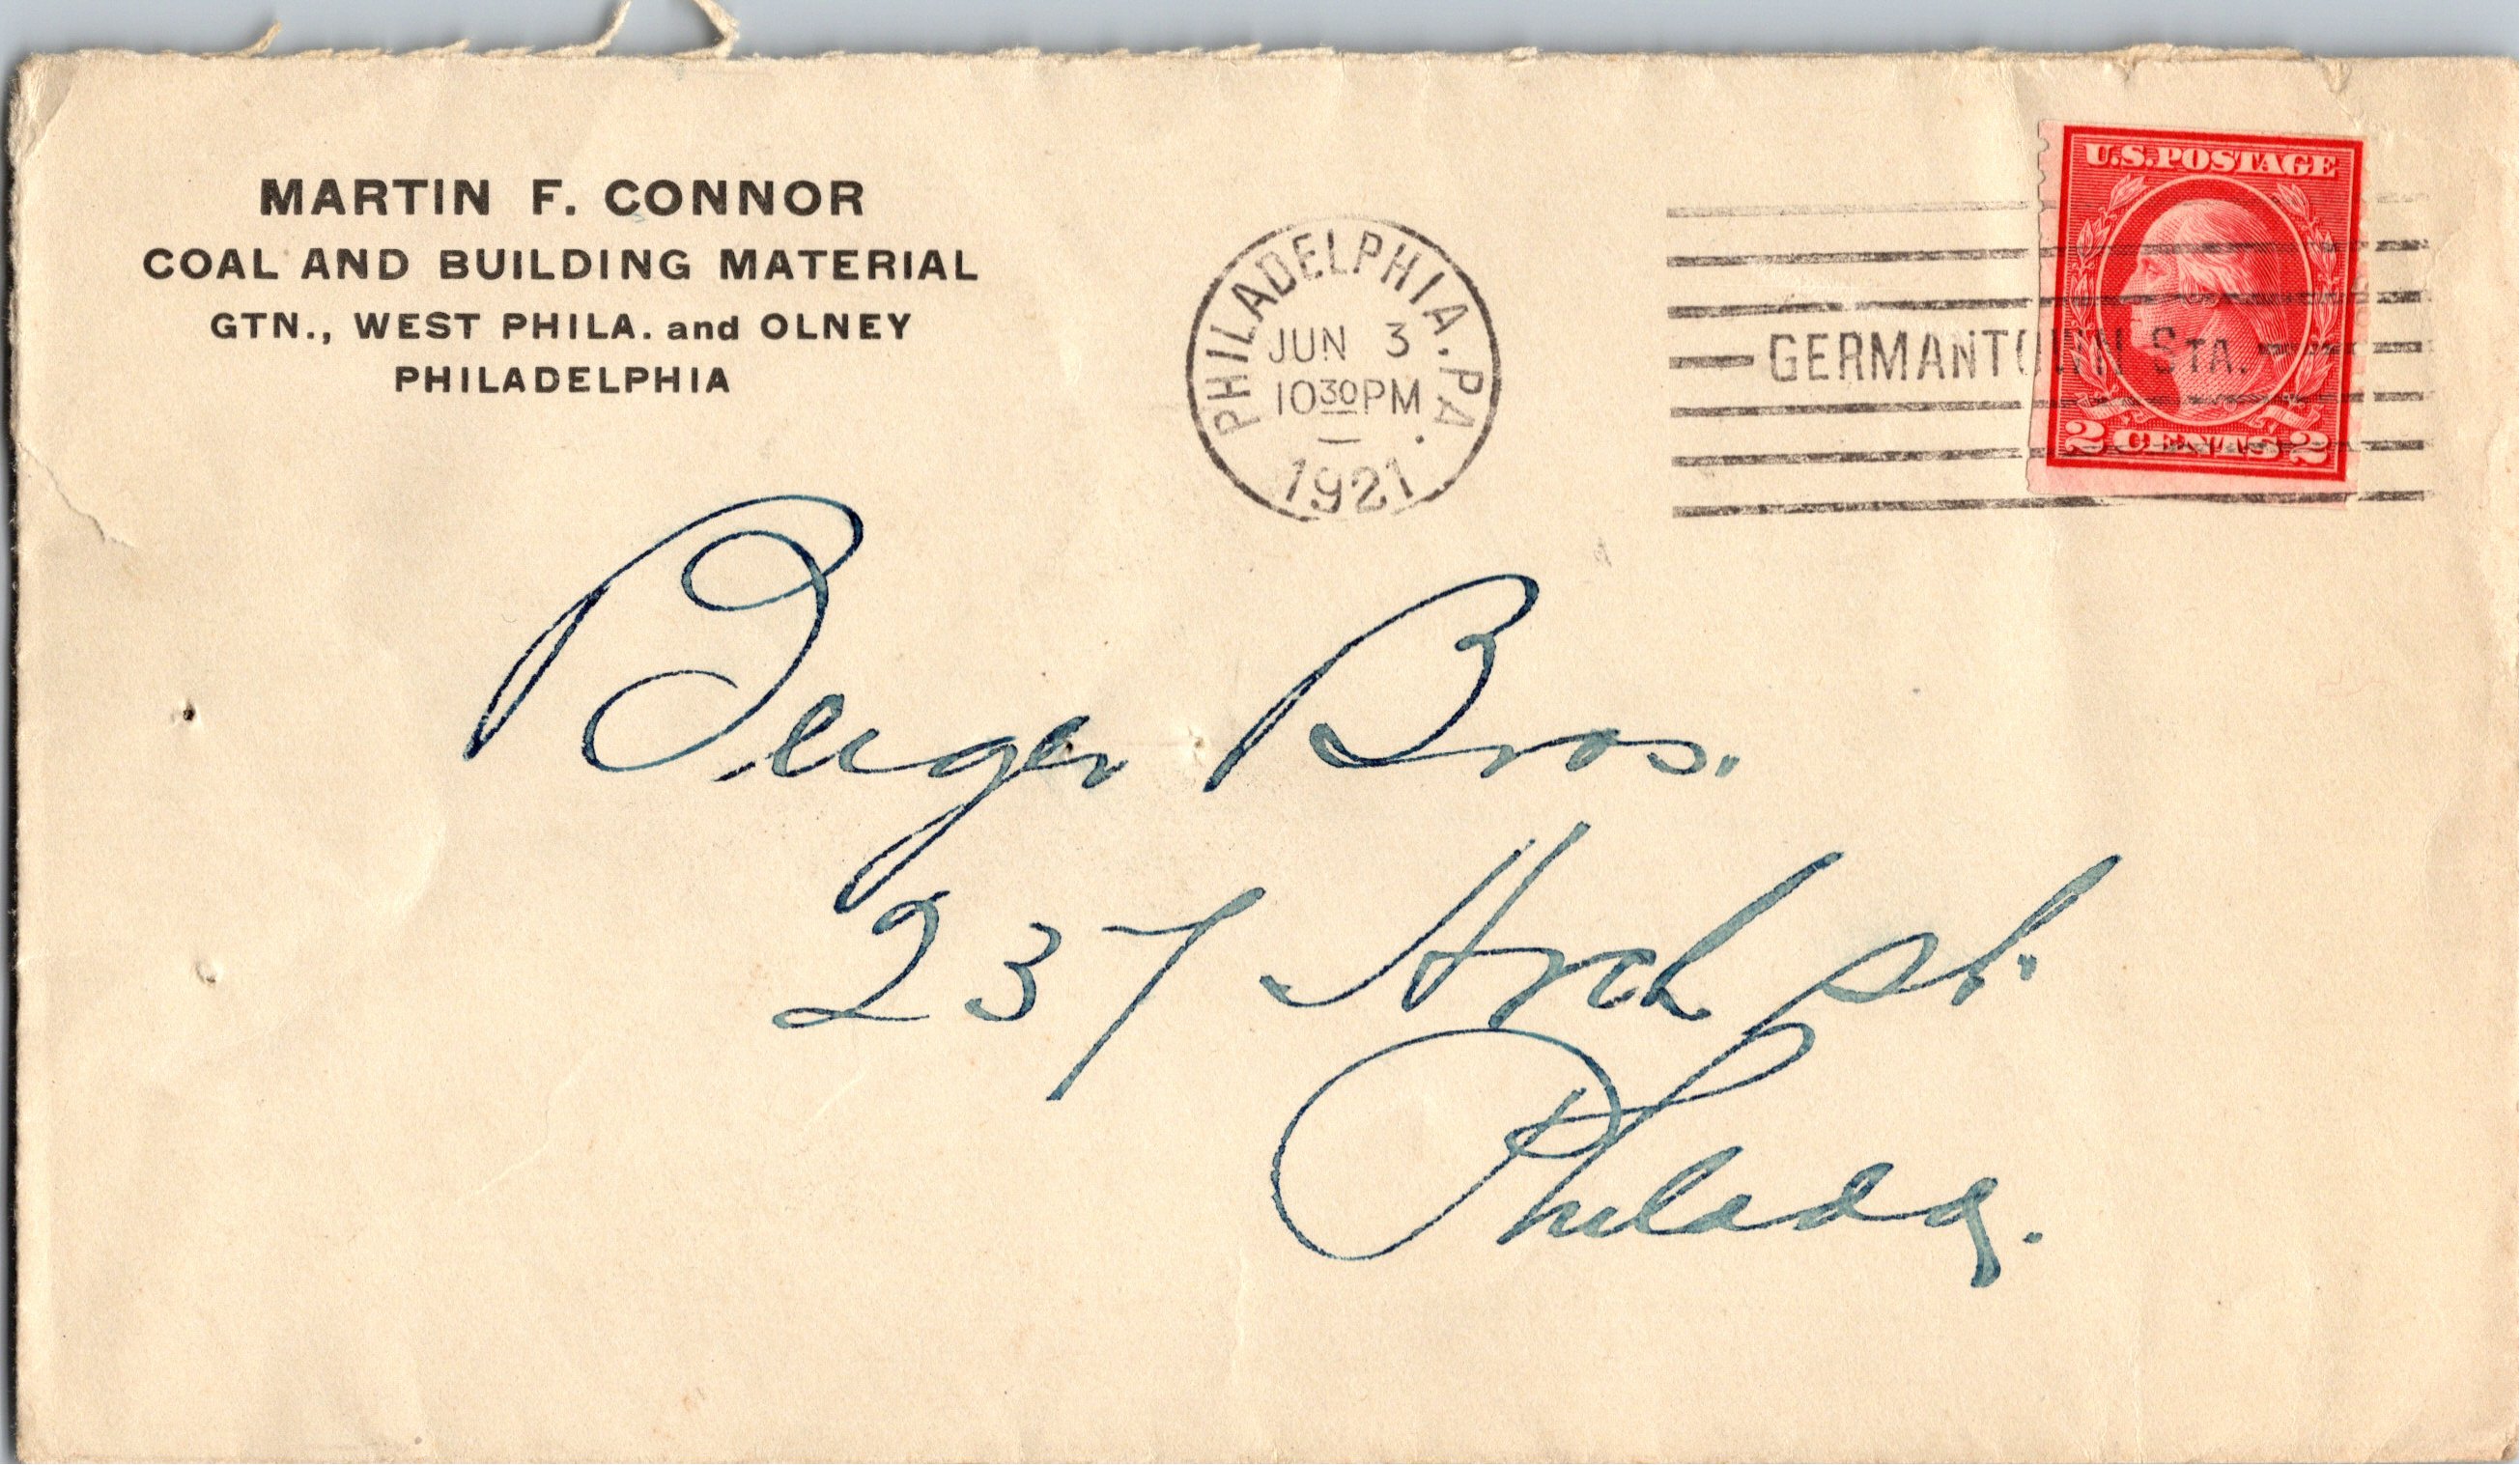 MARTIN F. CONNOR
COAL AND BUILDING MATERIAL
GTN., WEST PHILA. and OLNEY
PHILADELPHIA
PHILADELPHIA, PA.
JUN 3
10 30 PM
1921
GERMANTOWN STA.
U.S. POSTAGE
2 CENTS 2
Berger Bros.
237 Arch St.
Philada.